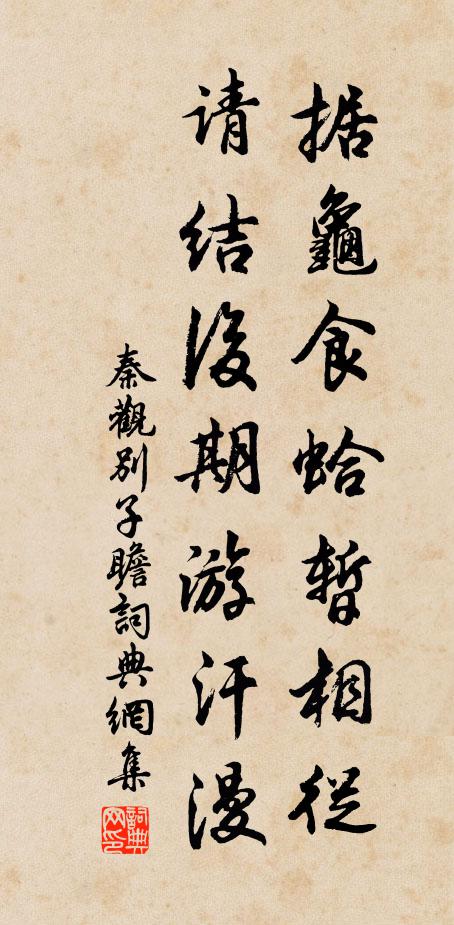 据龜食蛤暫相從
请结後期游汗漫
秦觀别子瞻詞典網集
詞典网印